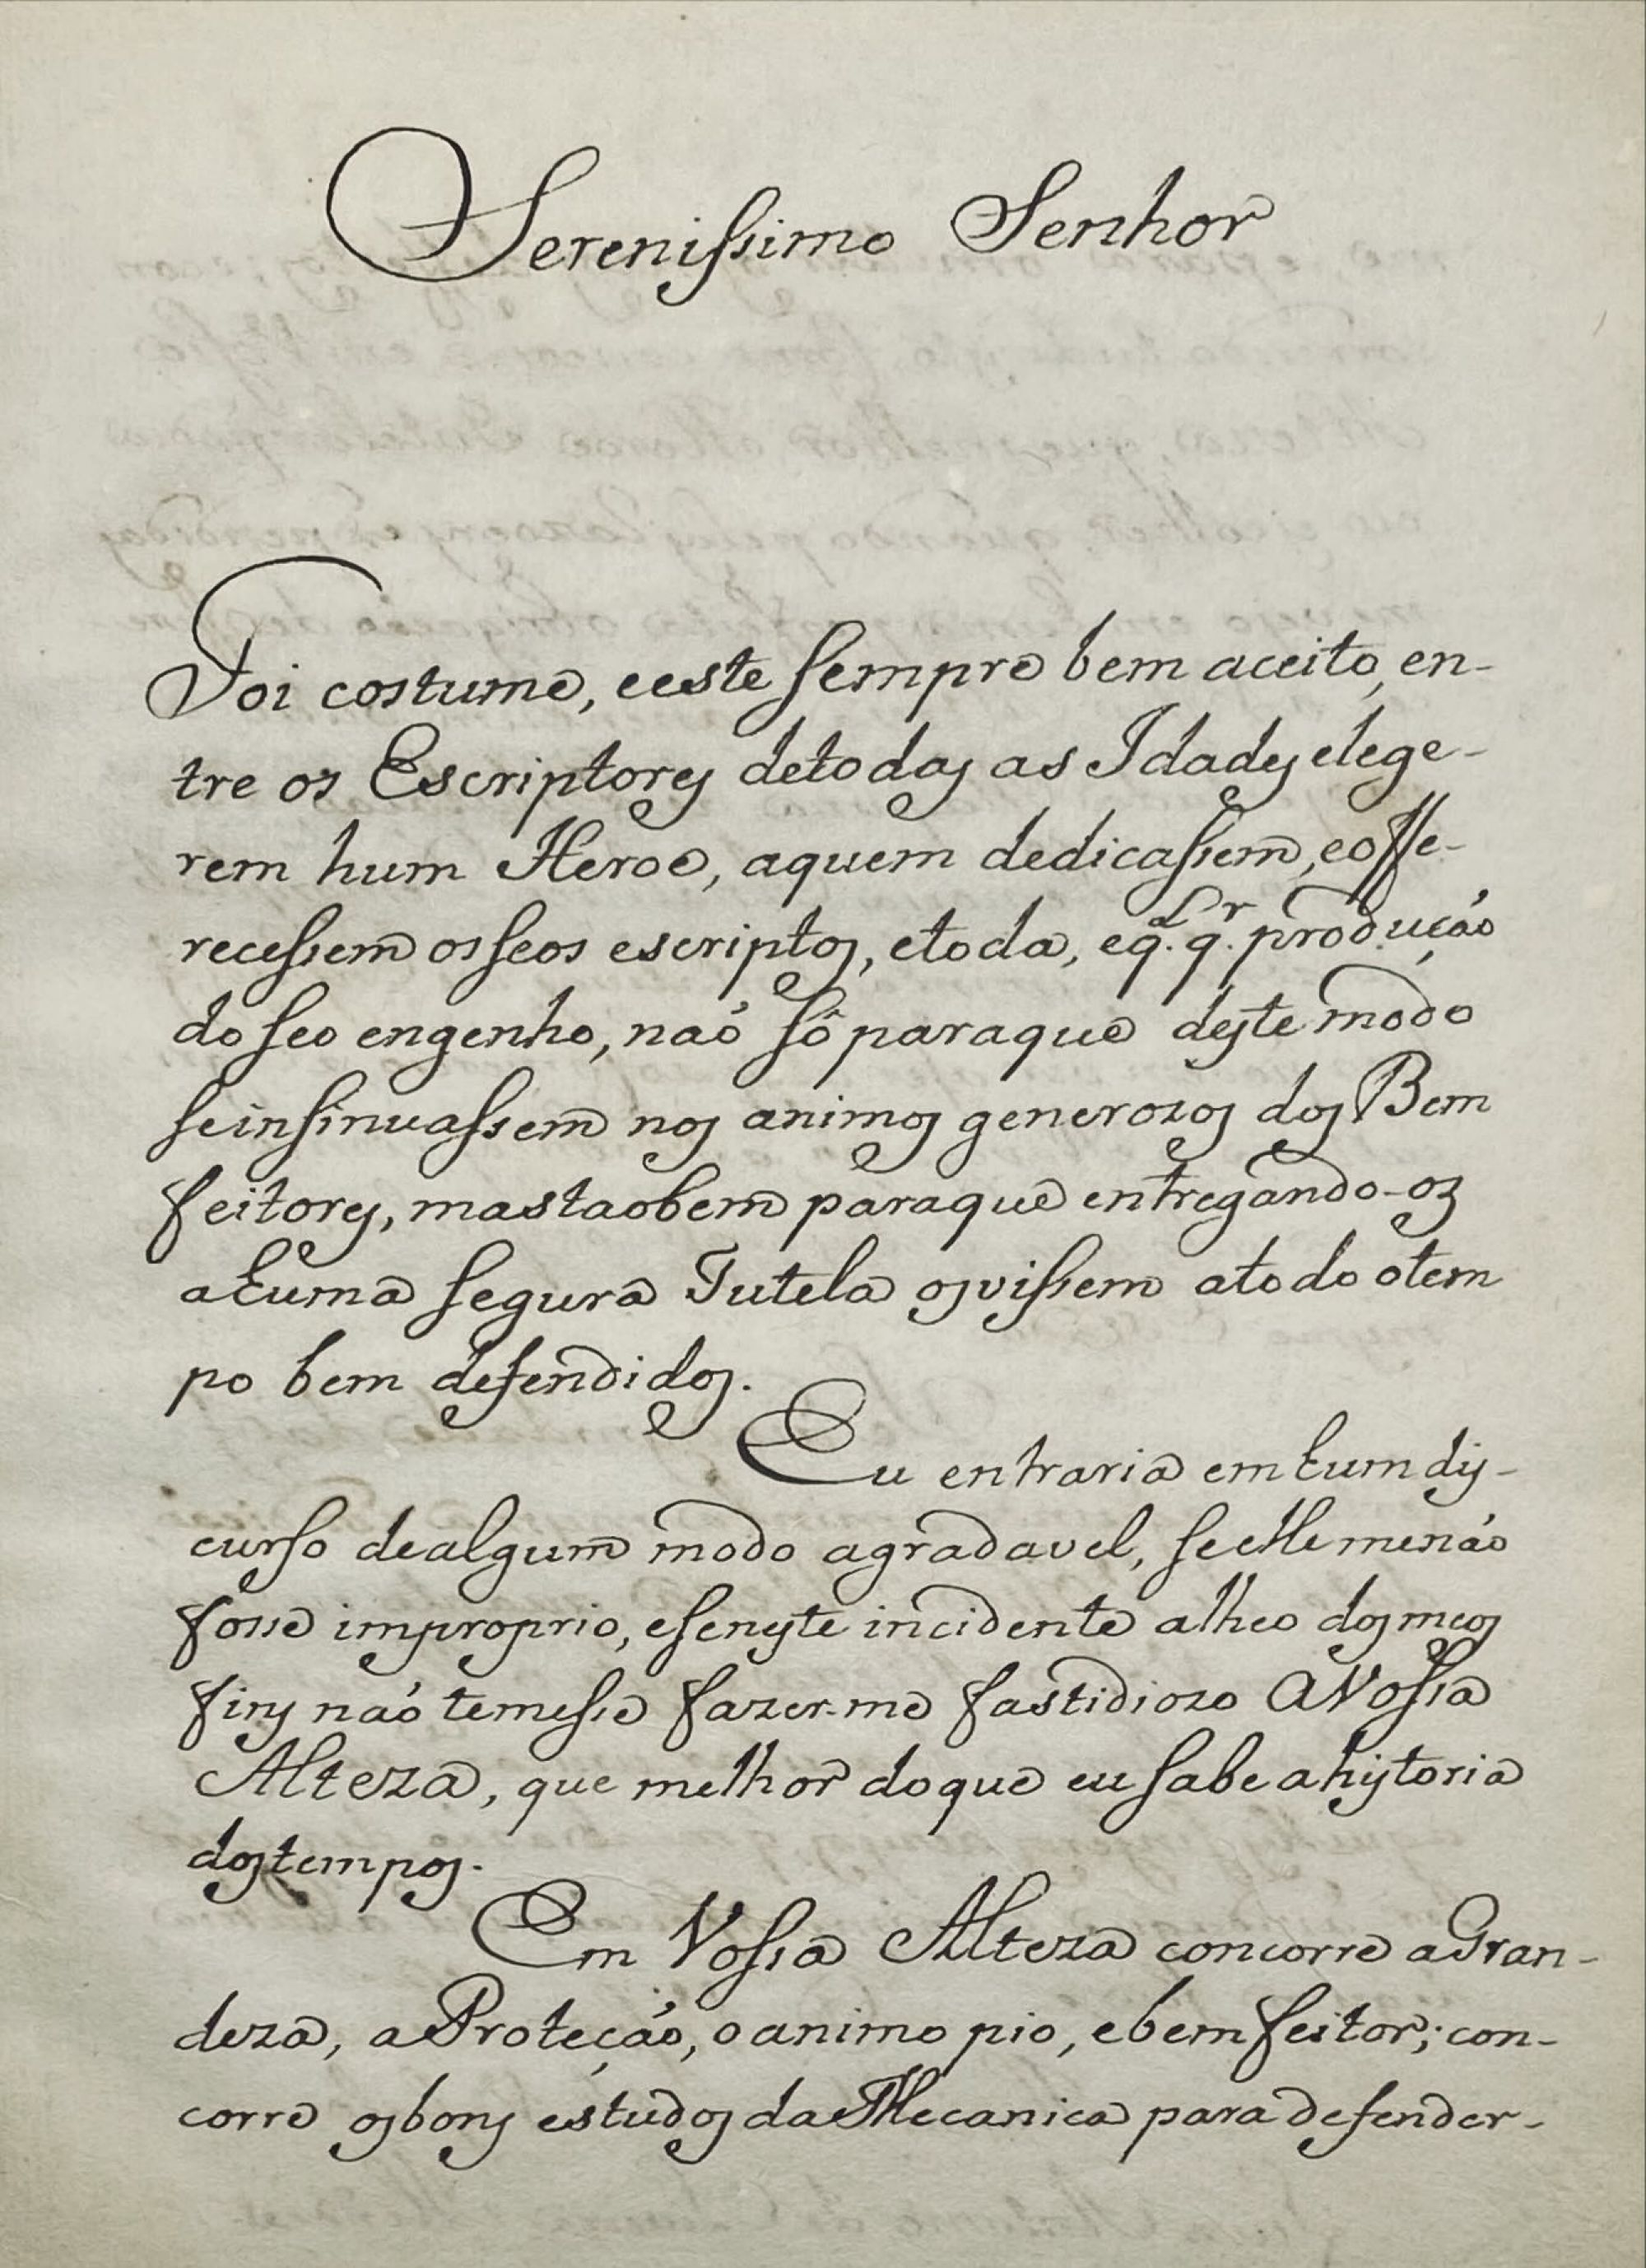 Serenissimo Senhor
Foi costume, eeste sempre bem aceito, en-
tre os Escriptores detodas as Idades elege-
rem hum Heroe, aquem dedicassem, eoffe-
recessem osseos escriptos, etoda, eq. q.^r produção
doseo engenho, naó sô paraque deste modo
seinsinuassem nos animos generozos dos Bem
feitores, mastaobem paraque entregando-os
ahuma segura Tutela osvissem atodo otem
po bem defendidos.
Eu entraria emhum dis-
curso dealgum modo agradavel, seelle menáo
fosse improprio, eseneste incidente alheo dosmeos
fins naó temesse fazer-me fastidiozo AVossa
Alteza, que melhor doque eu sabe ahistoria
dostempos.
Em Vossa Alteza concorre aGran-
deza, aProteçáo, oanimo pio, ebemfeitor; con-
corre osbons estudos daMecanica para defender-